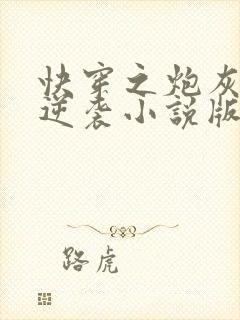 快穿之炮灰
逆袭小説版
路虎